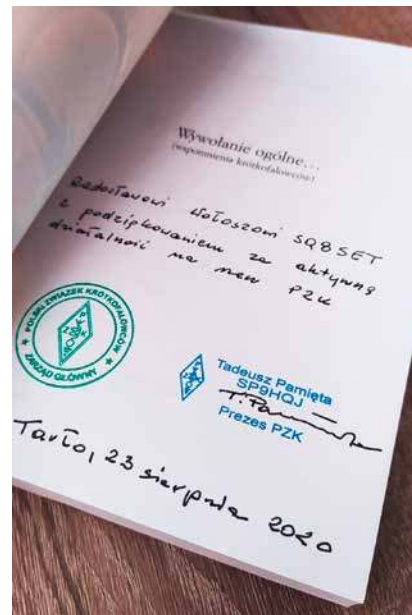 Wywołanie ogólne...
(wspomnienia krótkofalowców)
Radosławowi Wołoszowi SQ8SET
z podziękowaniem za aktywną
działalność na rzecz PZK
POLSKI ZWIĄZEK KRÓTKOFALOWCÓW
ZARZĄD GŁÓWNY
Tadeusz Pamięta
SP9HQJ
Prezes PZK
Tarło, 23 sierpnia 2020